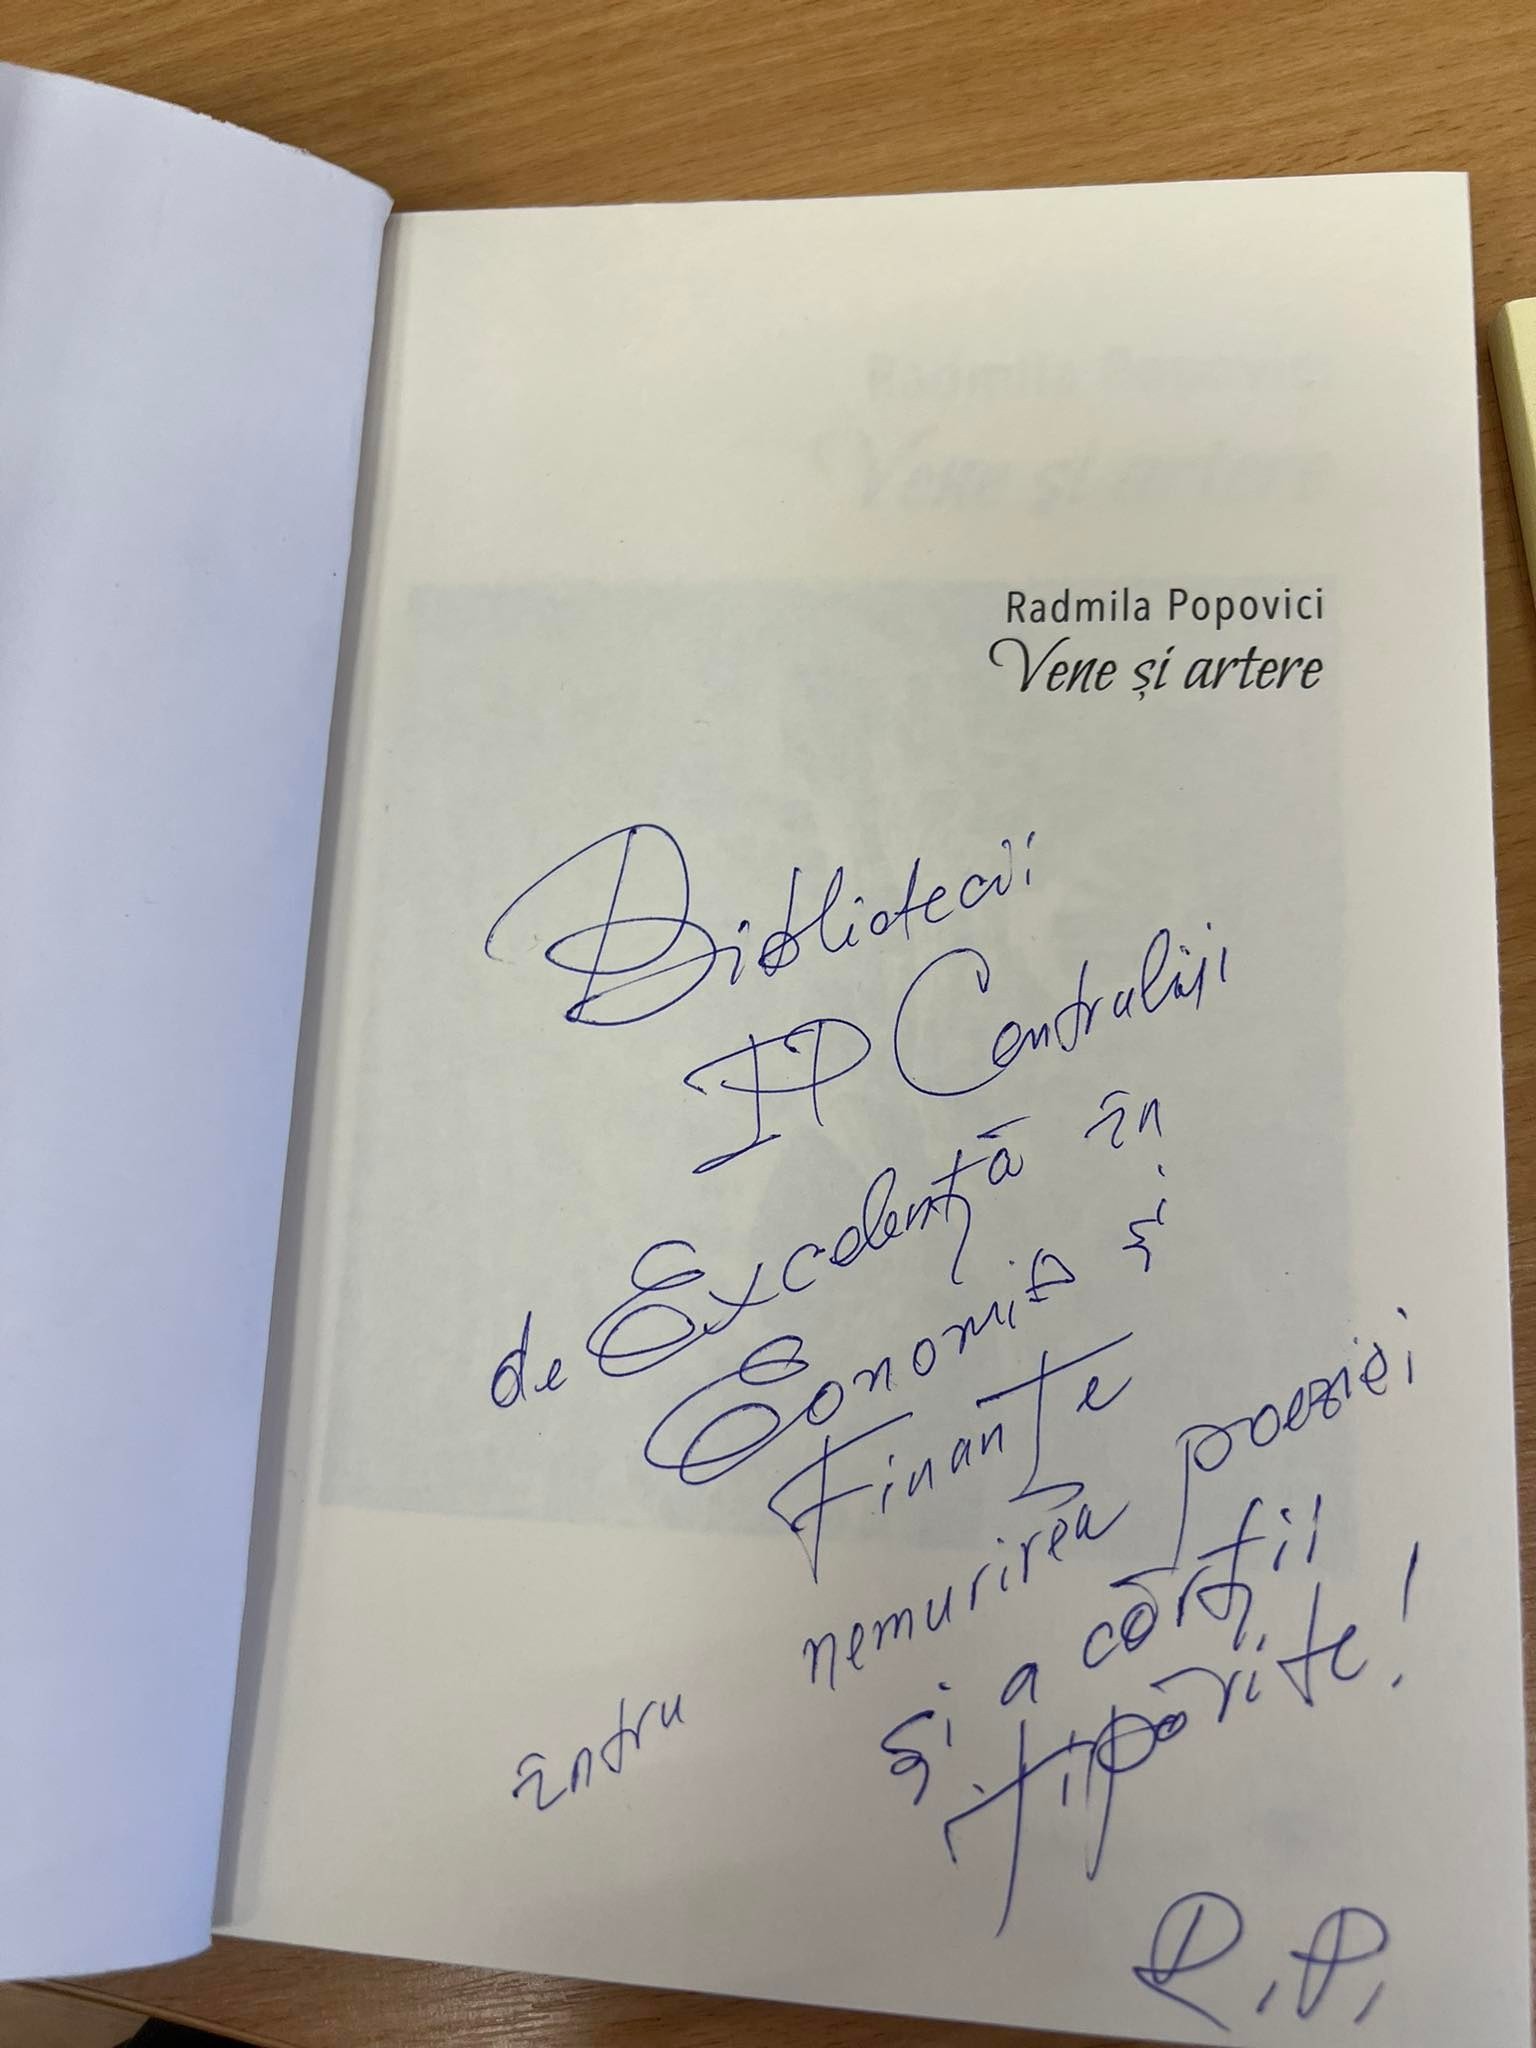 Radmila Popovici
Vene și artere
Bibliotecii
IP Centrului
de Excelență în
Economie și
Finanțe
întru nemurirea poeziei
și a cărții
tipărite!
R.P.